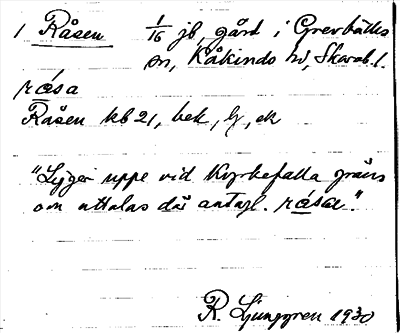 1 Råsen 1/16 jb, gård i Grevbäcks
sn, Kåkinds hd, Skarab. l.
råsa
Råsen kb 21, bek, lj, ek
"Ligger uppe vid Kyrkefalla gräns
om uttalas där antagl. råsa."
R. Ljunggren 1930